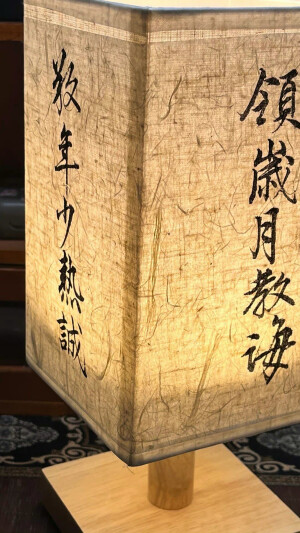 領歲月教誨
敬年少熱誠